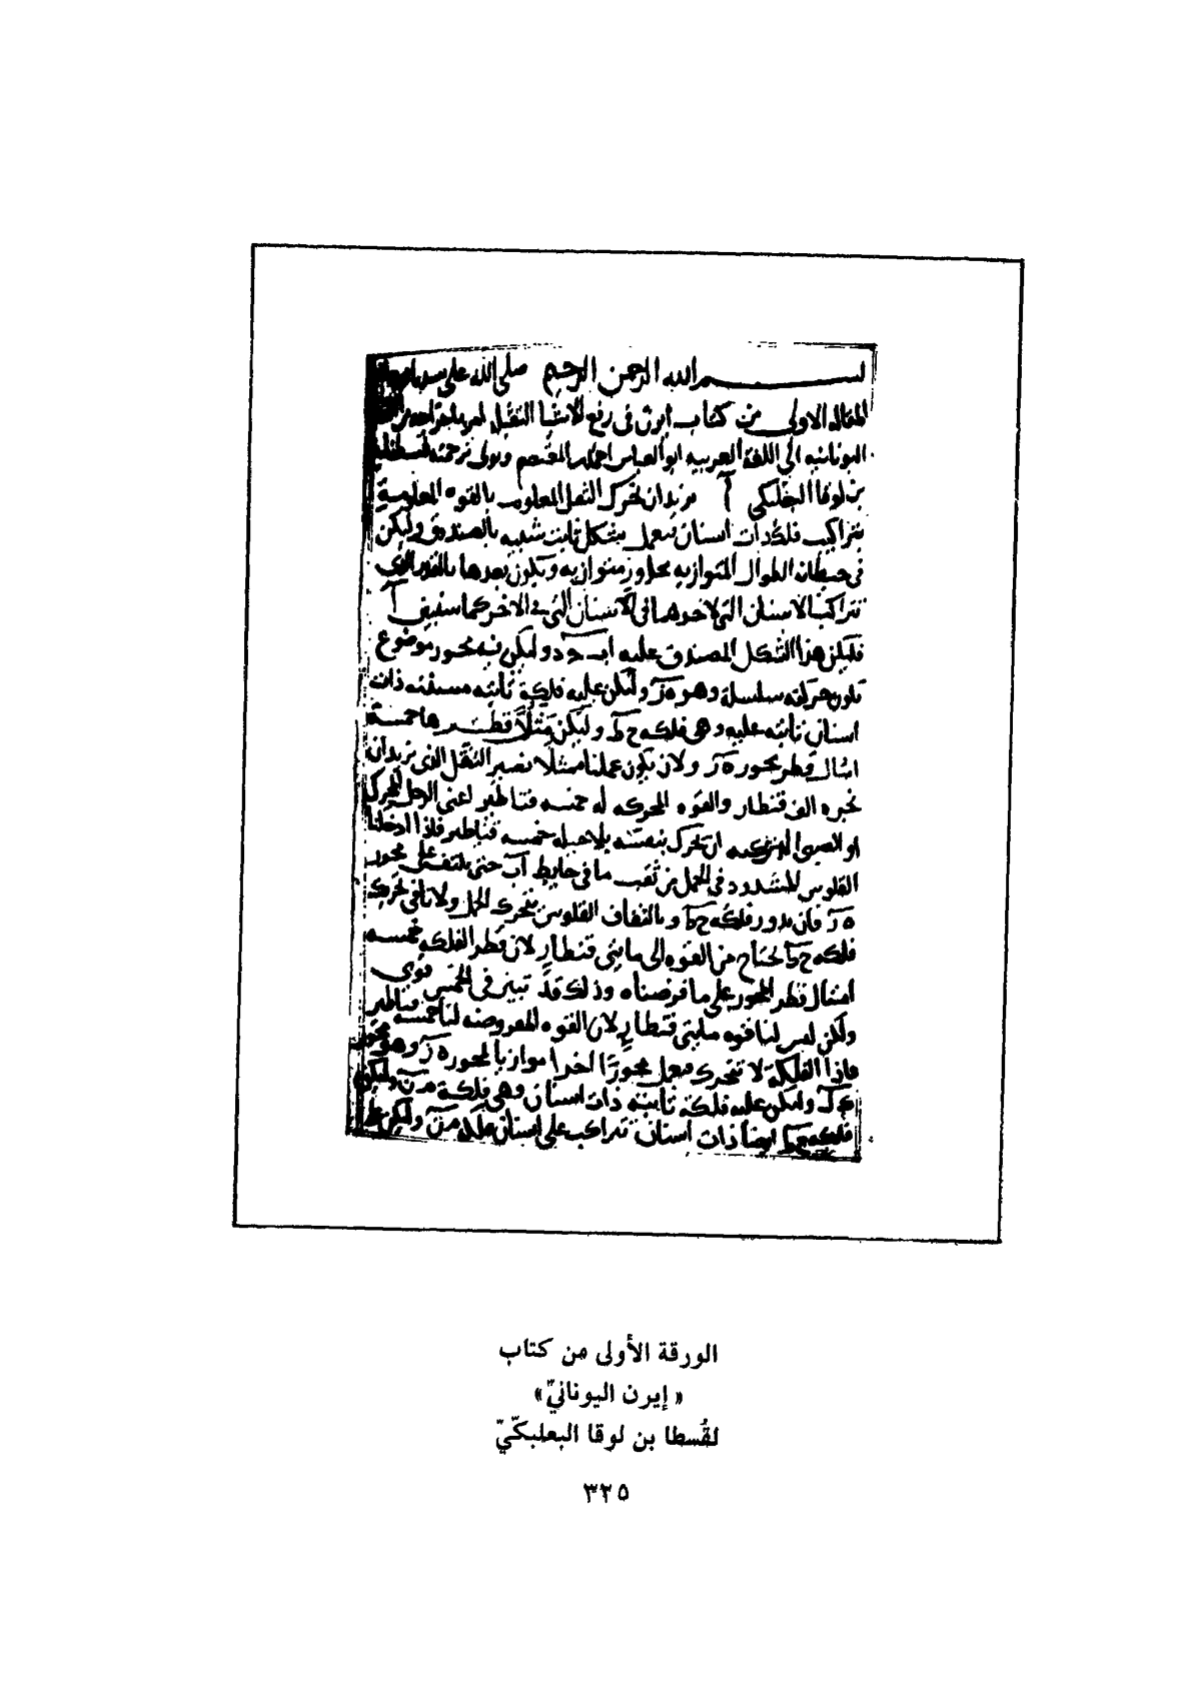 بسم الله الرحمن الرحيم صلى الله على
المقاله الاولى من كتاب ايرن فى رفع الاشيا الثقيله
اليونانيه الى اللغة العربيه ابو العباس احمد بن المعتصم وتولى ترجمته قسطا
بن لوقا البعلبكي آ نريد ان نحرك الثقل المعلوم بالقوه المعلومة
بتراكيب فلك ذات اسنان فنعمل بشكل ثابت شبيه بالصندوق وليكن
فى حيطانه الطوال المتوازيه محاور متوازيه وتكون بعدها بالقدر الذى
تتراكب الاسنان التى لاحدهما فى الاسنان التى فى الاخر كما سنبين آ
فليكن هذا الشكل المصندق عليه اب جد وليكن فيه محور موضوع
تكون حركته سلسلة وهو ه ز وليكن عليه فلكة ثابته مسننه ذات
اسنان ثابته عليه وهى فلكه ح ط وليكن مثلا قطرها خمسة
امثال قطر محور ه ز ولان يكون عملنا مثلا نصير الثقل الذى نريد ان
نجره الف قنطار والقوه المحركه له خمسه قناطير اعنى الرجل المحرك
او الصبى ان يحرك بنفسه بلا حيله خمسه قناطير فاذا ادخلنا
القلوس المشدود فى الحمل من ثقب ما فى حايط اب حتى يلتف على محور
ه ز فان بدور فلكه ح ط وبالتفاف القلوس يتحرك الحمل ولا ياتى تحرك
فلكه ح ط يحتاج من القوه الى مايتى قنطار لان قطر الفلكه خمسه
امثال قطر المحور على ما فرضناه وذلك قد تبين فى الخمس قوى
ولكن ليس لنا قوه مايتى قنطار لان القوه المفروضه لنا خمسه قناطير
فاذا الفلكة لا تتحرك فنعمل محورا اخرا موازيا لمحور ه ز وهو محور
ك ل وليكن عليه فلكة ثابته ذات اسنان وهى فلكة م ن وليكن
فلكه ح ط ايضا ذات اسنان تتراكب على اسنان فلكة م ن وليكن على
الورقة الأولى من كتاب
« إيرن اليونانيّ»
لقُسطا بن لوقا البعلبكّيّ
٣٢٥